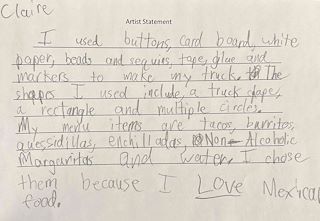 Claire
Artist Statement
I used buttons, Card board, white
paper, beads and sequirs, tape, glue and
markers to make my truck. The
shapes I used include, a truck shape,
a rectangle and multiple circles.
My menu items are tacos, burritos,
quessidillas, enchilladas, Non-Alcoholic
Margaritas and water. I chose
them because I LOVE Mexican
food.